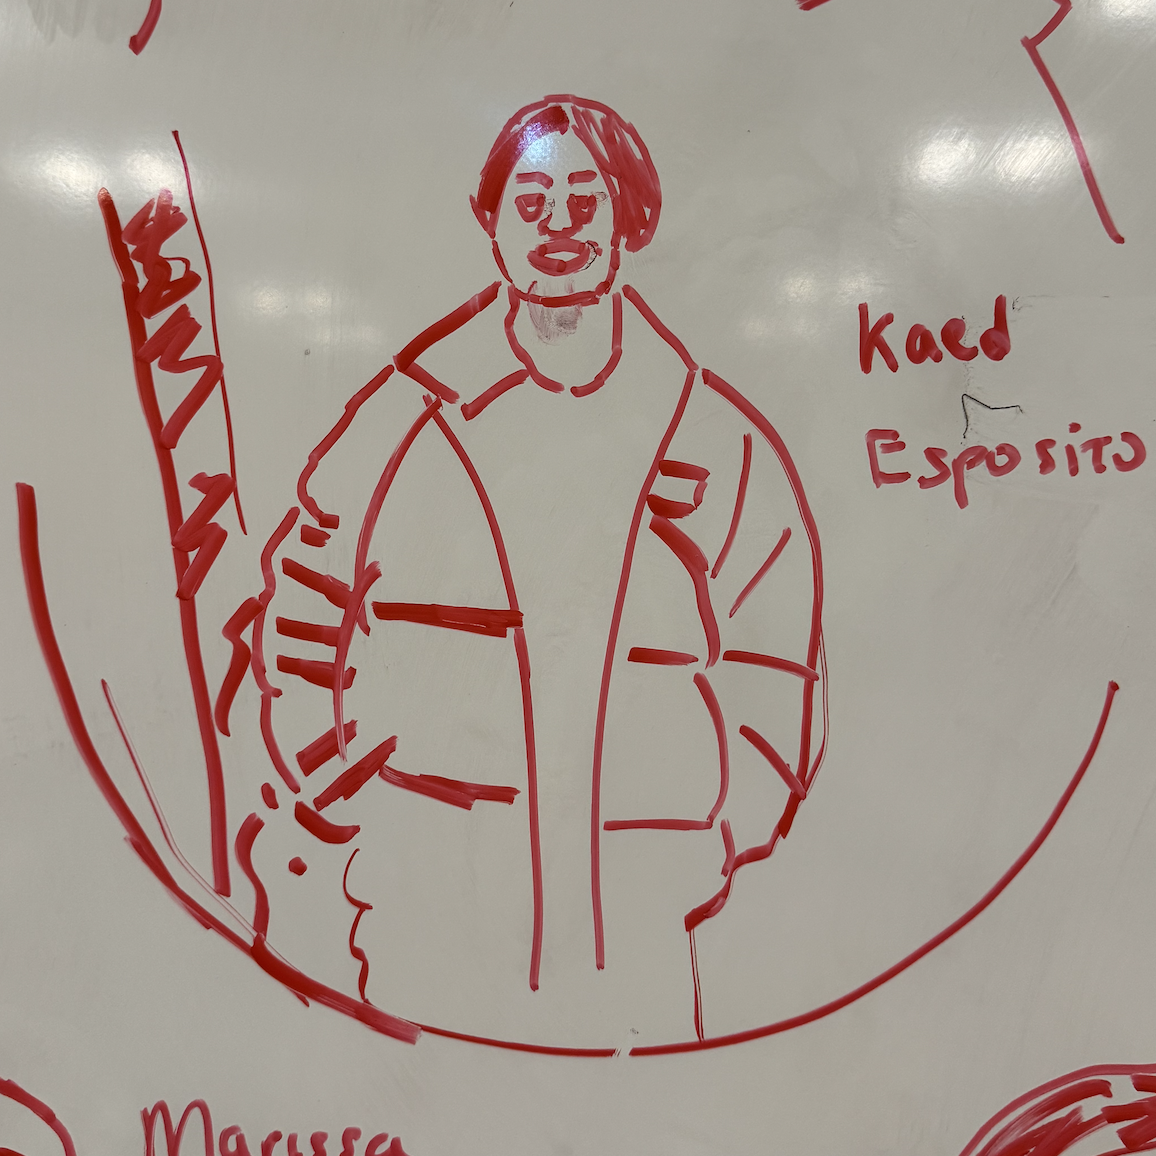 Kaed
Esposito
Marissa